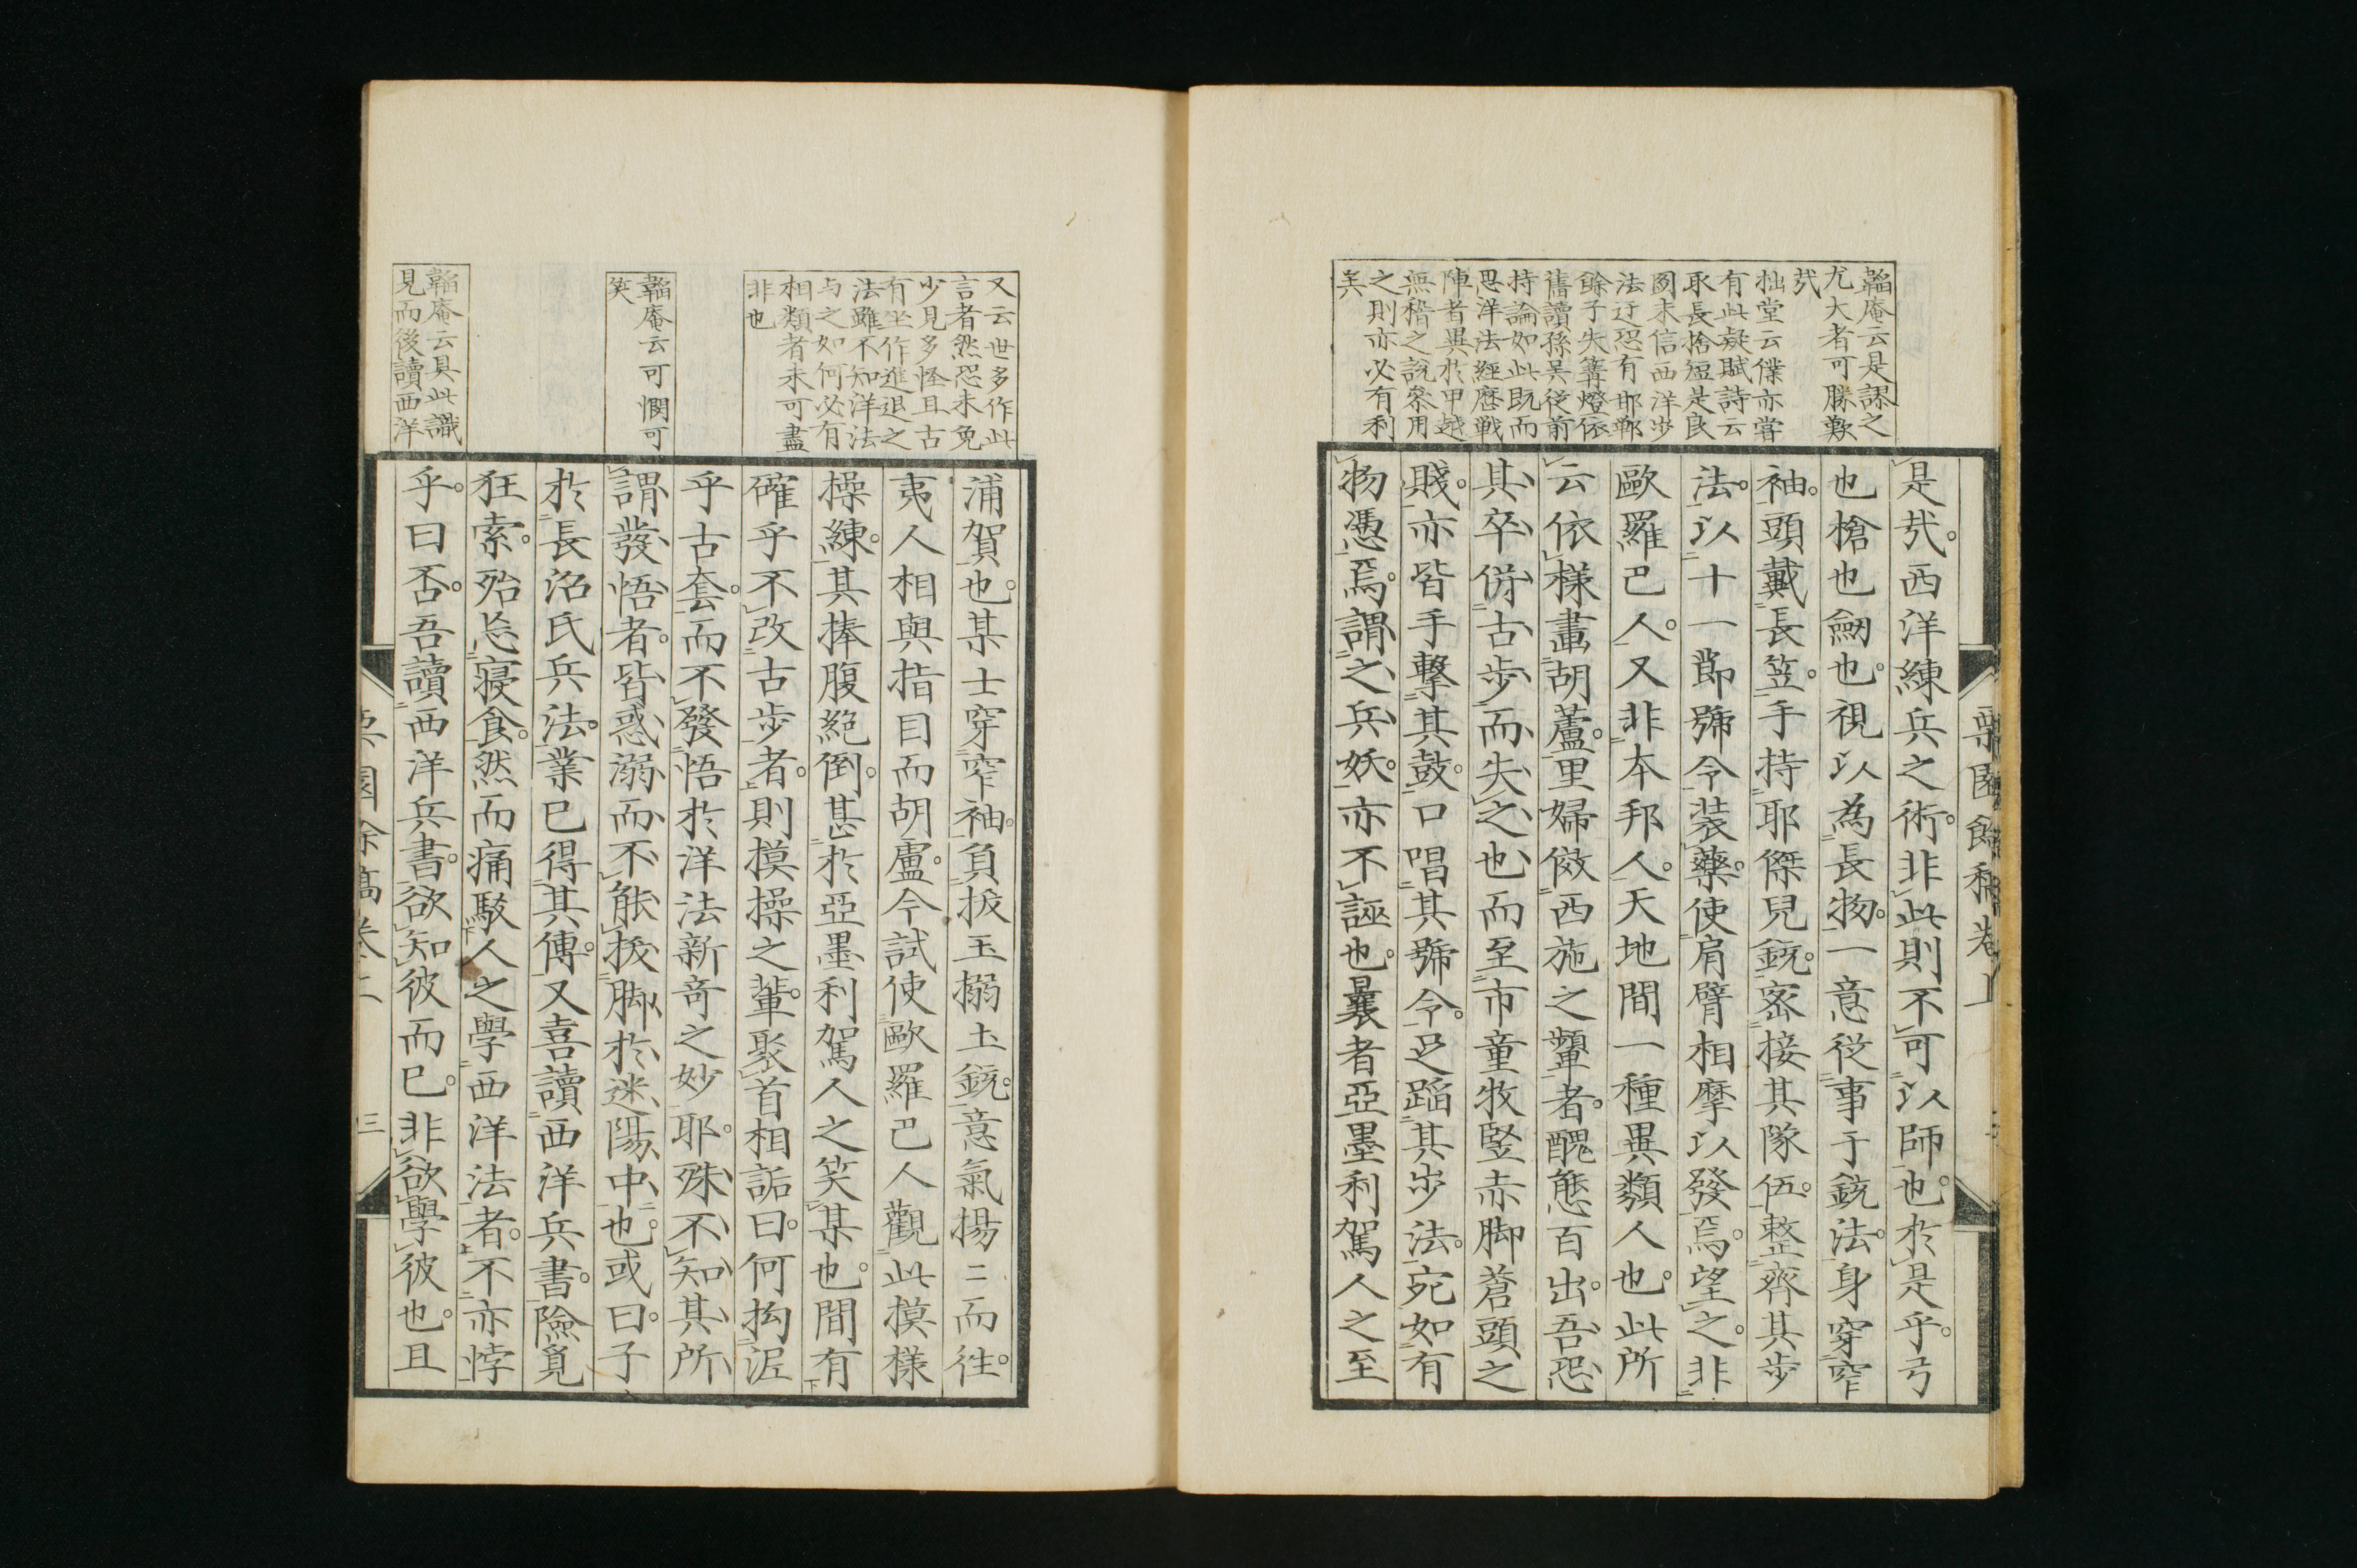 韜庵云是謬之
尤大者可勝歎
㢤
拙堂云僕亦嘗
有此疑賦詩云
取長捨短是良
圖未信西洋步
法迂恐有邯鄲
餘子失篝燈依
舊讀孫吳從前
持論如此既而
思洋法經歷戰
陣者異於甲越
無稽之說參用
之則亦必有利
矣
是㢤西洋練兵之術非此則不可以師也於是乎弓
也槍也劒也視以為長物一意從事于銃法身穿窄
袖頭戴長笠手持耶傑兒銃密接其隊伍整齊其步
法以十一節號令裝藥使肩臂相摩以發焉望之非
歐羅巴人又非本邦人天地間一種異類人也此所
云依樣畫胡蘆里婦傚西施之顰者醜態百出吾恐
其卒倂古步而失之也而至市童牧豎赤脚蒼頭之
賤亦皆手擊其鼓口唱其號令足蹈其步法宛如有
物憑焉謂之兵妖亦不誣也曩者亞墨利駕人之至
又云世多作此
言者然恐未免
少見多怪且古
有坐作進退之
法雖不知洋法
与之如何必有
相類者未可盡
非也
韜庵云可憫可
笑
韜庵云具此識
見而後讀西洋
浦賀也某士穿窄袖負拔玉搦土銃意氣揚二而徃
夷人相與指目而胡盧今試使歐羅巴人觀此摸樣
操練其捧腹絕倒甚於亞墨利駕人之笑某也間有
確乎不改古步者則摸操之輩聚首相詬曰何拘泥
乎古套而不發悟於洋法新奇之妙耶殊不知其所
謂發悟者皆惑溺而不能拔脚於迷陽中也或曰子
於長沼氏兵法業已得其傳又喜讀西洋兵書險覓
狂索殆忘寢食然而痛駁人之學西洋法者不亦悖
乎曰否吾讀西洋兵書欲知彼而已非欲學彼也且